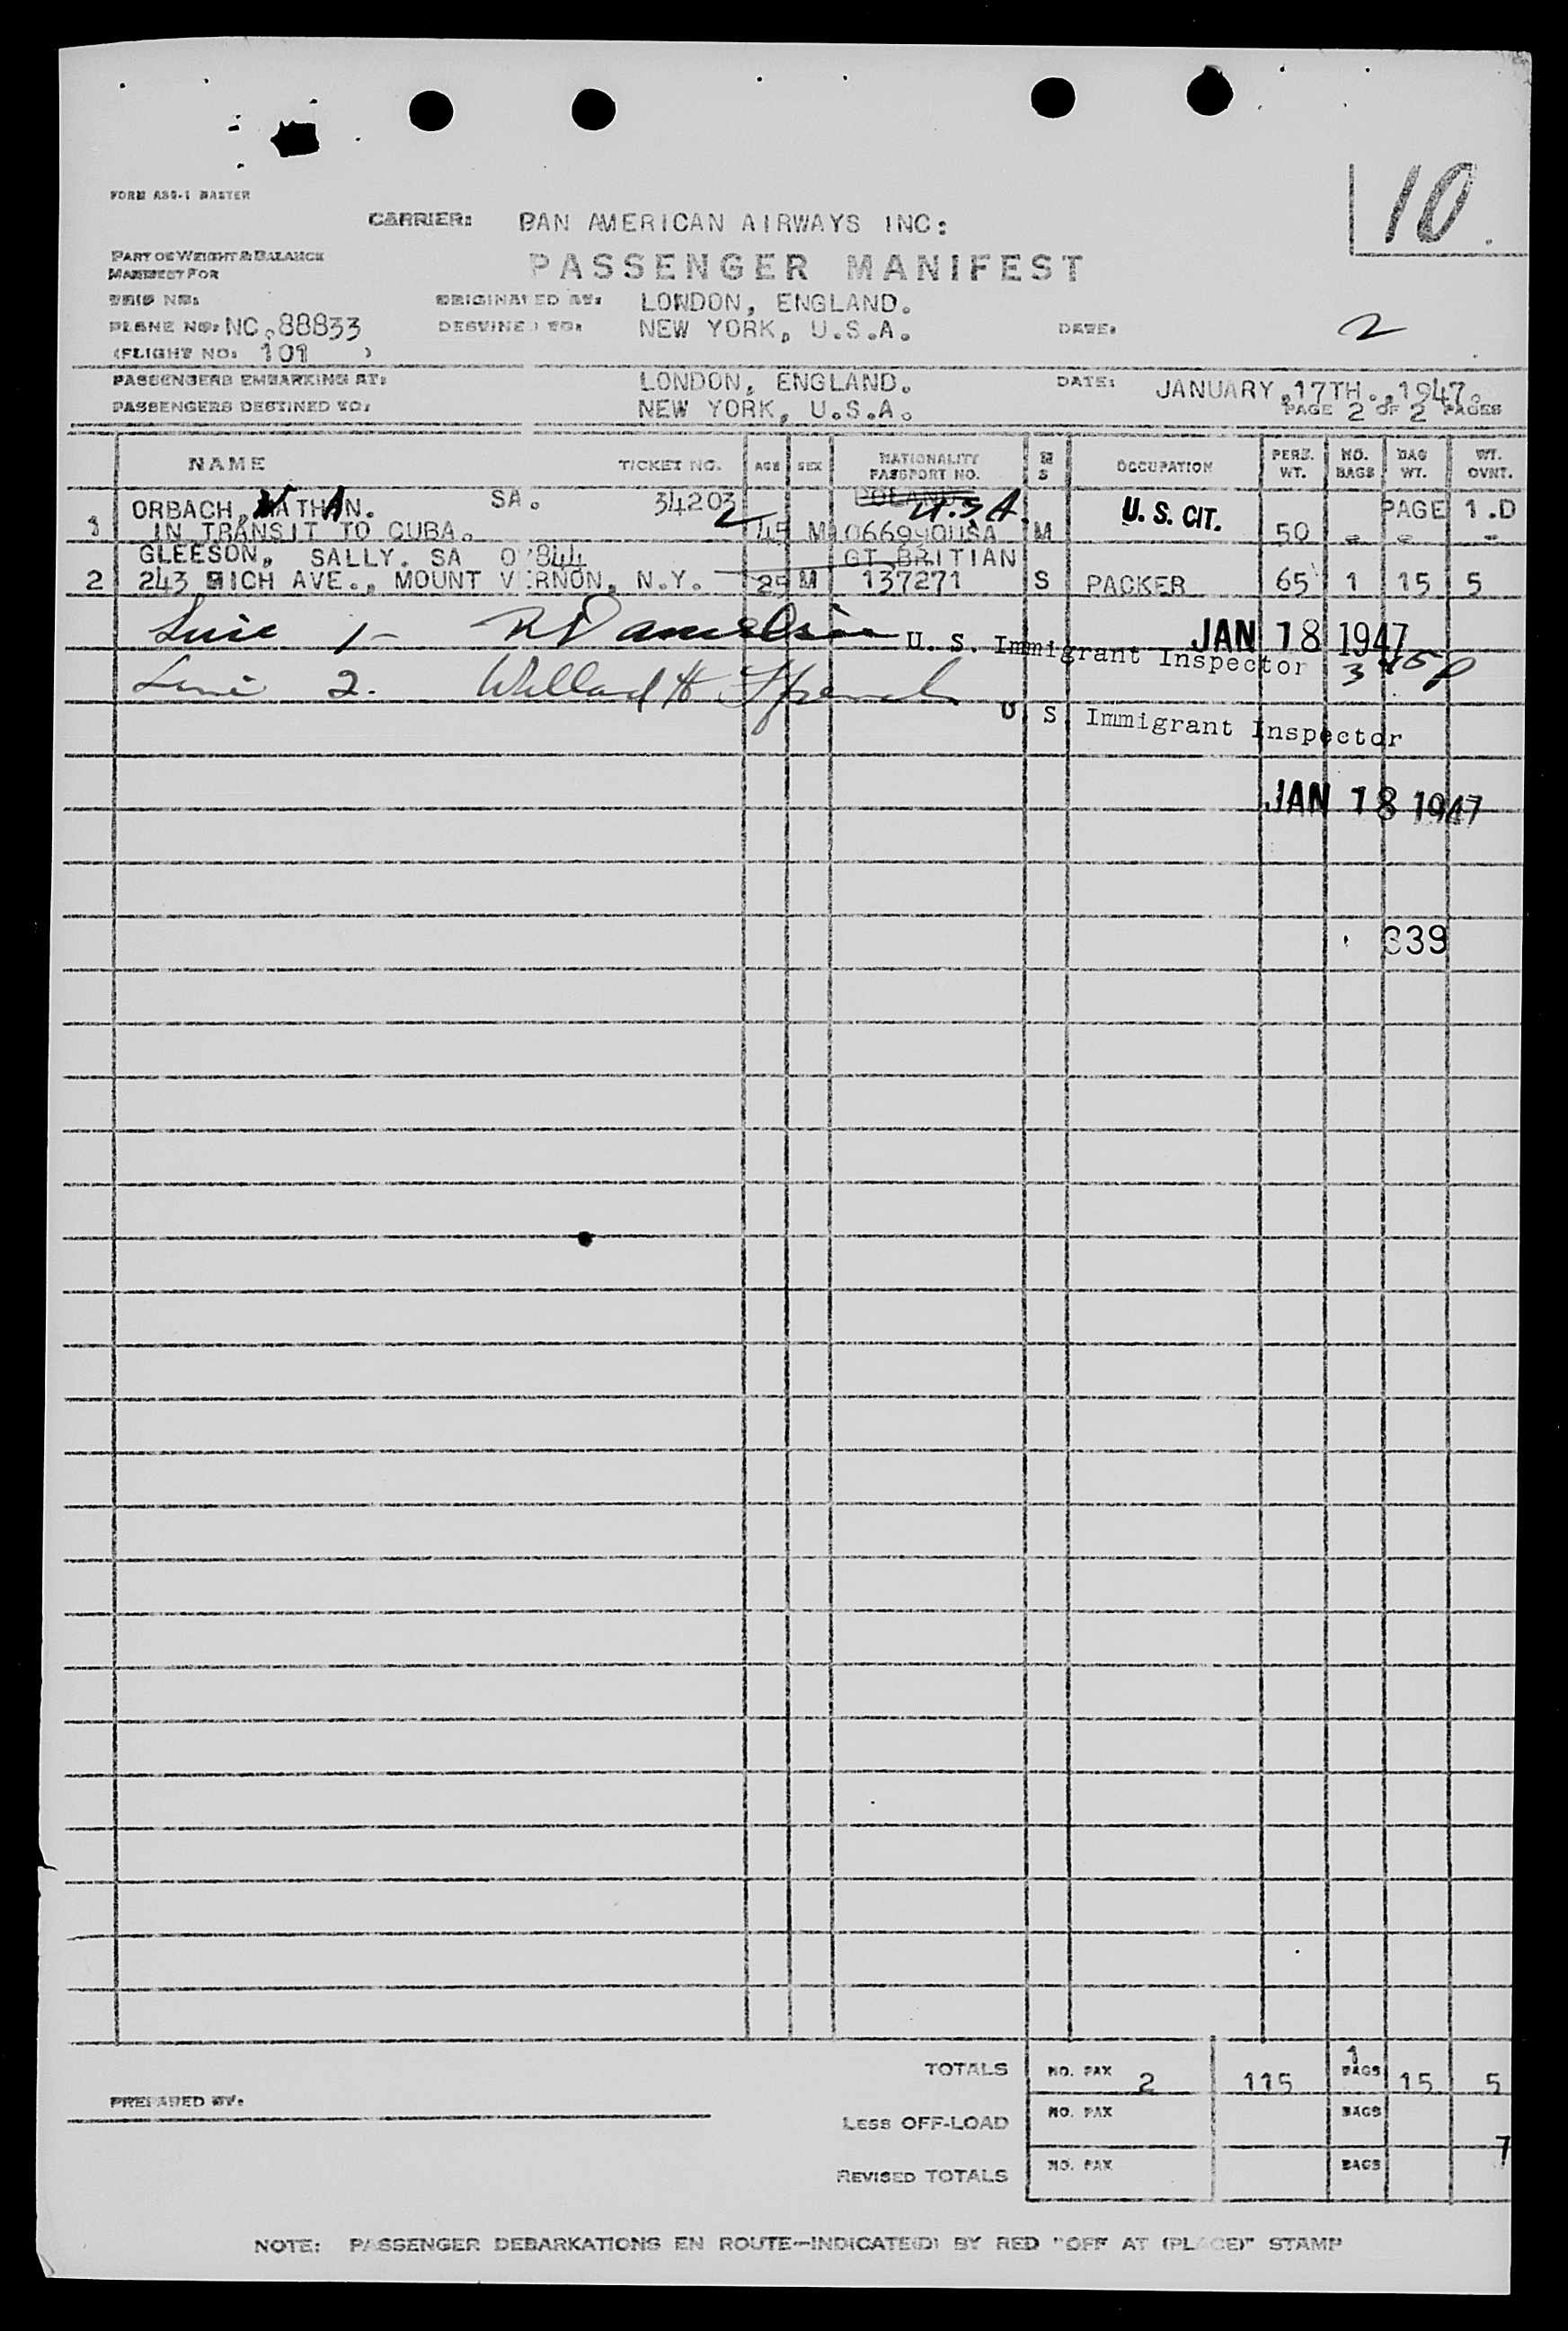 10.
FORM ASG-1 MASTER
CARRIER: PAN AMERICAN AIRWAYS INC:
PART OF WEIGHT & BALANCE
MANIFEST FOR
PASSENGER MANIFEST
TRIP NO: ORIGINATED AT: LONDON, ENGLAND.
PLANE NO: NC.88833 DESTINED TO: NEW YORK, U.S.A. DATE: 2
(FLIGHT NO: 101 )
PASSENGERS EMBARKING AT: LONDON, ENGLAND. DATE: JANUARY,17TH.,1947.
PASSENGERS DESTINED TO: NEW YORK, U.S.A. PAGE 2 OF 2 PAGES
NAME TICKET NO. AGE SEX NATIONALITY PASSPORT NO. M S OCCUPATION PERS. WT. NO. BAGS BAG WT. WT. OVNT.
ORBACH, NATHAN. SA. 34203 POLAND U.S.A. U. S. CIT. PAGE 1.D
1 IN TRANSIT TO CUBA. 45 M M 50 - - -
GLEESON, SALLY. SA GT BRITIAN
2 243 RICH AVE., MOUNT VERNON, N.Y. 25 M 137271 S PACKER 65 1 15 5
Line 1- U. S. Immigrant Inspector JAN 18 1947
Line 2. Willard H 345p
U. S. Immigrant Inspector
JAN 18 1947
339
TOTALS NO. PAX 2 115 1 BAGS 15 5
PREPARED BY:
LESS OFF-LOAD NO. PAX BAGS
7
REVISED TOTALS NO. PAX BAGS
NOTE: PASSENGER DEBARKATIONS EN ROUTE—INDICATE(D) BY RED "OFF AT (PLACE)" STAMP